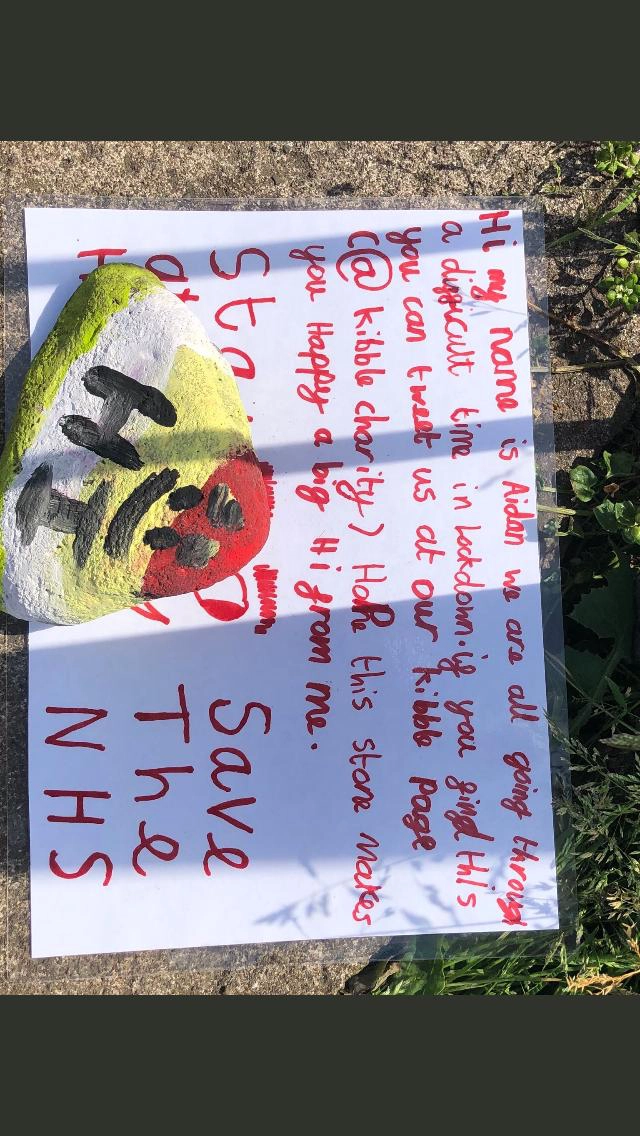 Hi my name is Aidan we are all going through
a difficult time in Lockdown. if you find this
you can tweet us at our kibble page
(@ kibble charity) Hope this stone makes
you Happy a big Hi from me.
Save
The
NHS